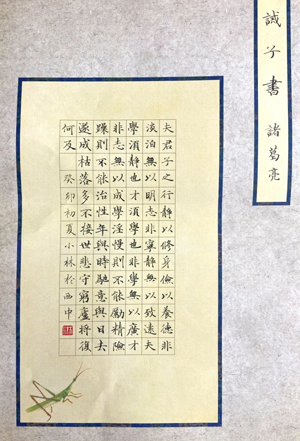 誡子書 諸葛亮
夫君子之行靜以修身儉以養德非
淡泊無以明志非寧靜無以致遠夫
學須靜也才須學也非學無以廣才
非志無以成學淫慢則不能勵精險
躁則不能治性年與時馳意與日去
遂成枯落多不接世悲守窮廬將復
何及 癸卯初夏小林於西申